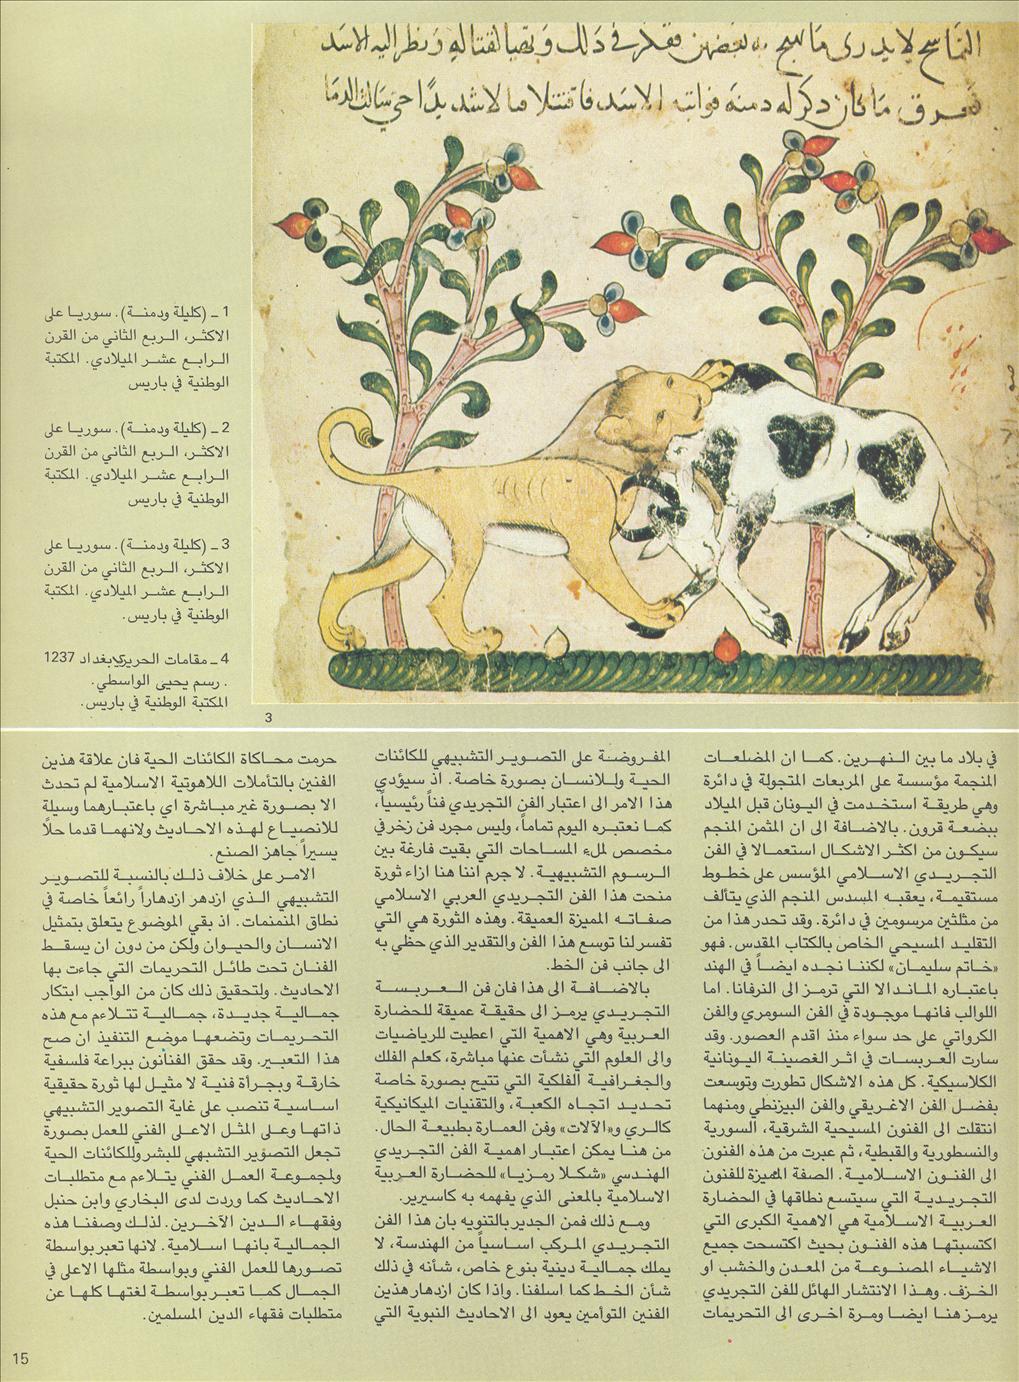 النا سح لا يدرى ما يهيج به بعضهن ففكر في ذلك وتهيا لقتاله ونظر اليه الاسد
فعرف ما كان ذكر له دمنه فواثبه الاسد فاقتتلا قتالا شديدًا حتى سالت الدما
1 ــ (كليلة ودمنــة). سوريـا على
الاكثـر، الـربع الثاني من القرن
الـرابـع عشـر الميلادي. المكتبة
الوطنية في باريس
2 ــ (كليلة ودمنــة). سوريـا على
الاكثـر، الـربع الثاني من القرن
الـرابـع عشـر الميلادي. المكتبة
الوطنية في باريس
3 ــ (كليلة ودمنــة). سوريـا على
الاكثـر، الـربع الثاني من القرن
الـرابـع عشـر الميلادي. المكتبة
الوطنية في باريس.
4 ــ مقامات الحريري بغداد 1237
. رسم يحيى الواسطي.
المكتبة الوطنية في باريس.
3
في بلاد ما بين الـنهـرين. كمـا ان المضلعـات
المنجمة مؤسسة على المربعات المتجولة في دائرة
وهي طريقـة استخـدمت في اليونان قبل الميلاد
ببضعـة قرون. بالاضـافة الى ان المثمن المنجم
سيكون من اكثر الاشكـال استعمـالا في الفن
التجريـدي الاسـلامي المؤسس على خطـوط
مستقيمة، يعقبـه المسدس المنجم الذي يتألف
من مثلثين مرسومين في دائرة. وقد تحدر هذا من
التقليـد المسيحي الخاص بالكتاب المقدس. فهو
«خاتم سليمـان» لكننـا نجـده ايضـاً في الهند
باعتبـاره المانـدالا التي ترمـز الى النرفانا. اما
اللوالب فانهـا موجودة في الفن السومري والفن
الكرواتي على حد سواء منذ اقدم العصور. وقد
سارت العربسـات في اثـر الغصينـة اليـونانية
الكلاسيكية. كل هذه الاشكال تطورت وتوسعت
بفضـل الفن الاغريقي والفن البيزنطي ومنهما
انتقلت الى الفنون المسيحية الشرقية، السورية
والنسطورية والقبطية، ثم عبرت من هذه الفنون
الى الفنـون الاسـلاميـة. الصفة المميزة للفنون
التجريـديـة التي سيتسع نطاقهـا في الحضارة
العربيـة الاسـلامية هي الاهمية الكبرى التي
اكتسبتهـا هذه الفنـون بحيث اكتسحت جميع
الاشيـاء المصنـوعـة من المعـدن والخشب او
الخـزف. وهـذا الانتشار الهائل للفن التجريدي
يرمـز هنـا ايضـا ومرة اخرى الى التحريمات
المفروضـة على التصويـر التشبيهي للكائنات
الحية وللانسـان بصورة خاصة. اذ سيؤدي
هذا الامر الى اعتبار الفن التجريدي فناً رئيسياً،
كمـا نعتبـره اليوم تماماً، وليس مجرد فن زخرفي
مخصص لملء المسـاحات التي بقيت فارغة بين
الرسوم التشبيهية. لا جرم اننا هنا ازاء ثورة
منحت هذا الفن التجريـدي العربي الاسلامي
صفـاتـه المميزة العميقة. وهذه الثورة هي التي
تفسر لنا توسع هذا الفن والتقدير الذي حظي به
الى جانب فن الخط.
بالاضـافـة الى هذا فان فن العـربسـة
التجريدي يرمز الى حقيقة عميقة للحضارة
العربية وهي الاهمية التي اعطيت للرياضيات
والى العلوم التي نشأت عنها مباشرة، كعلم الفلك
والجغرافيـة الفلكية التي تتيح بصورة خاصة
تحديد اتجـاه الكعبة، والتقنيات الميكانيكية
كالري و«الآلات» وفن العمـارة بطبيعـة الحال.
من هنـا يمكن اعتبـار اهميـة الفن التجريـدي
الهندسي «شكـلا رمزيـا» للحضـارة العربية
الاسلامية بالمعنى الذي يفهمه به كاسيرير.
ومع ذلك فمن الجدير بالتنويه بان هذا الفن
التجريـدي المركب اسـاسيـاً من الهندسة، لا
يملك جمـاليـة دينية بنوع خاص، شأنه في ذلك
شأن الخـط كما اسلفنا. واذا كان ازدهار هذين
الفنين التوأمين يعود الى الاحاديث النبوية التي
حرمت محاكاة الكائنات الحية فان علاقة هذين
الفنين بالتأملات اللاهوتية الاسلامية لم تحدث
الا بصـورة غير مباشرة اي باعتبـارهمـا وسيلة
للانصيـاع لهـذه الاحـاديث ولانهمـا قدما حلًا
يسيراً جاهز الصنع.
الامـر على خلاف ذلـك بالنسبـة للتصويـر
التشبيهي الـذي ازدهـر ازدهـاراً رائعاً خاصة في
نطاق المنمنمات. اذ بقي الموضوع يتعلق بتمثيل
الانسـان والحيـوان ولكن من دون ان يسقـط
الفنـان تحت طائـل التحريمات التي جاءت بها
الاحاديث. ولتحقيق ذلك كان من الواجب ابتكار
جمـاليـة جديـدة، جمـاليـة تتـلاءم مع هذه
التحريمـات وتضعهـا موضع التنفيذ ان صح
هذا التعبيـر. وقد حقق الفنـانون ببراعة فلسفية
خارقـة وبجـرأة فنيـة لا مثيـل لها ثورة حقيقية
اسـاسيـة تنصب على غاية التصوير التشبيهي
ذاتهـا وعلى المثـل الاعلى الفني للعمل بصورة
تجعل التصوير التشبهي للبشر وللكائنات الحية
ولمجمـوعـة العمل الفني يتـلاءم مع متطلبـات
الاحاديث كما وردت لدى البخاري وابن حنبل
وفقهـاء الـدين الآخـرين. لذلـك وصفنـا هذه
الجمـاليـة بانهـا اسـلامية. لانها تعبر بواسطة
تصـورها للعمل الفني وبواسطة مثلها الاعلى في
الجمال كمـا تعبـر بواسطـة لغتهـا كلهـا عن
متطلبات فقهاء الدين المسلمين.
15